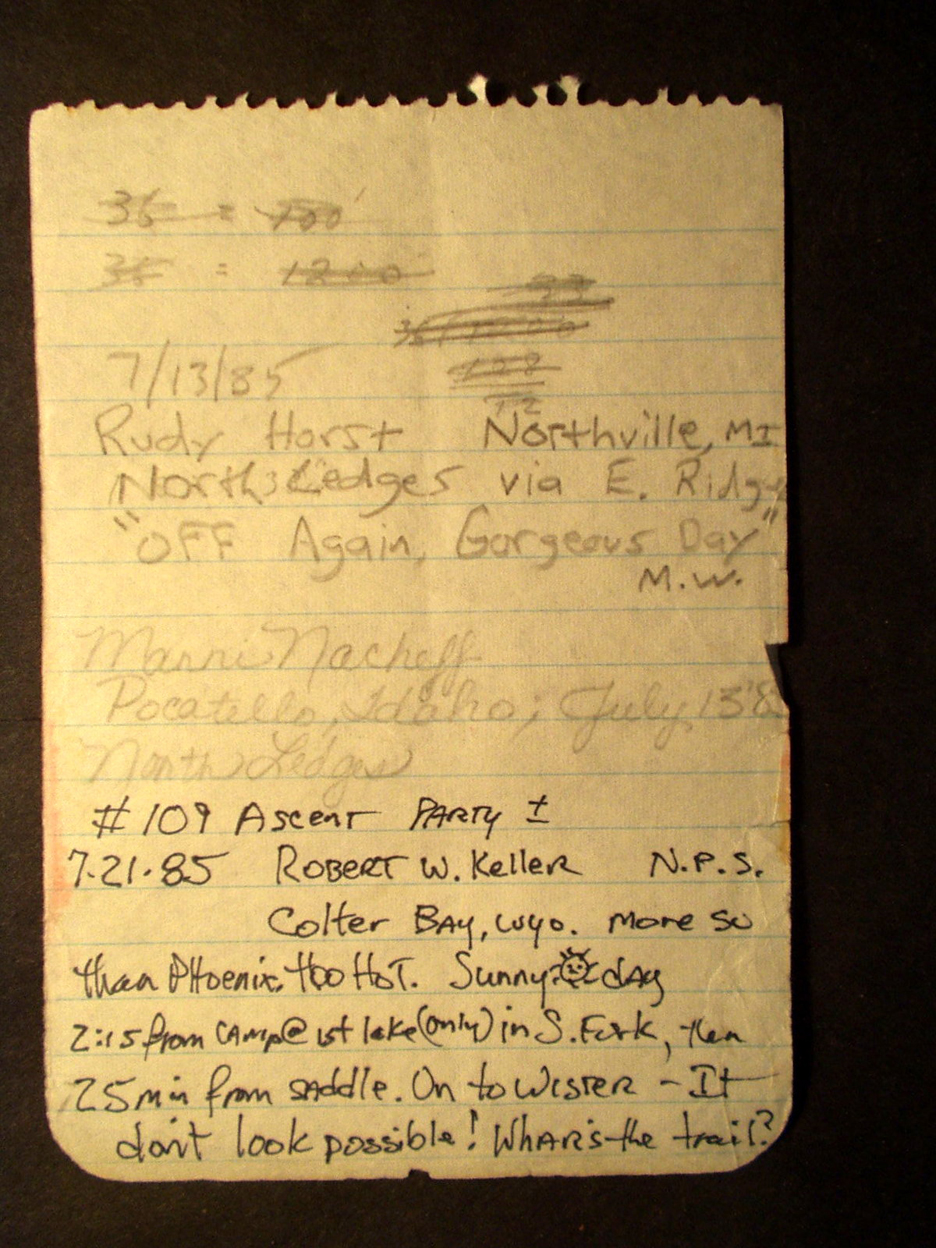 36 = 100
36 = 1200
33
36/1200
108
12
7/13/85
Rudy Horst Northville, MI
North Ledges via E. Ridge
"OFF Again, Gorgeous Day"
M.W.
Marni Nacheff
Pocatello, Idaho; July 13 '8
North Ledges
# 109 Ascent PARTY I
7.21.85 ROBERT W. Keller N.P.S.
Colter BAY, wyo. more so
than PHoenix. Too HoT. Sunny day
2:15 from CAmp @ 1st lake (only) in S. Fork, then
25 min from SADDle. On to WISTER - It
don't look possible! WHAR's the trail?